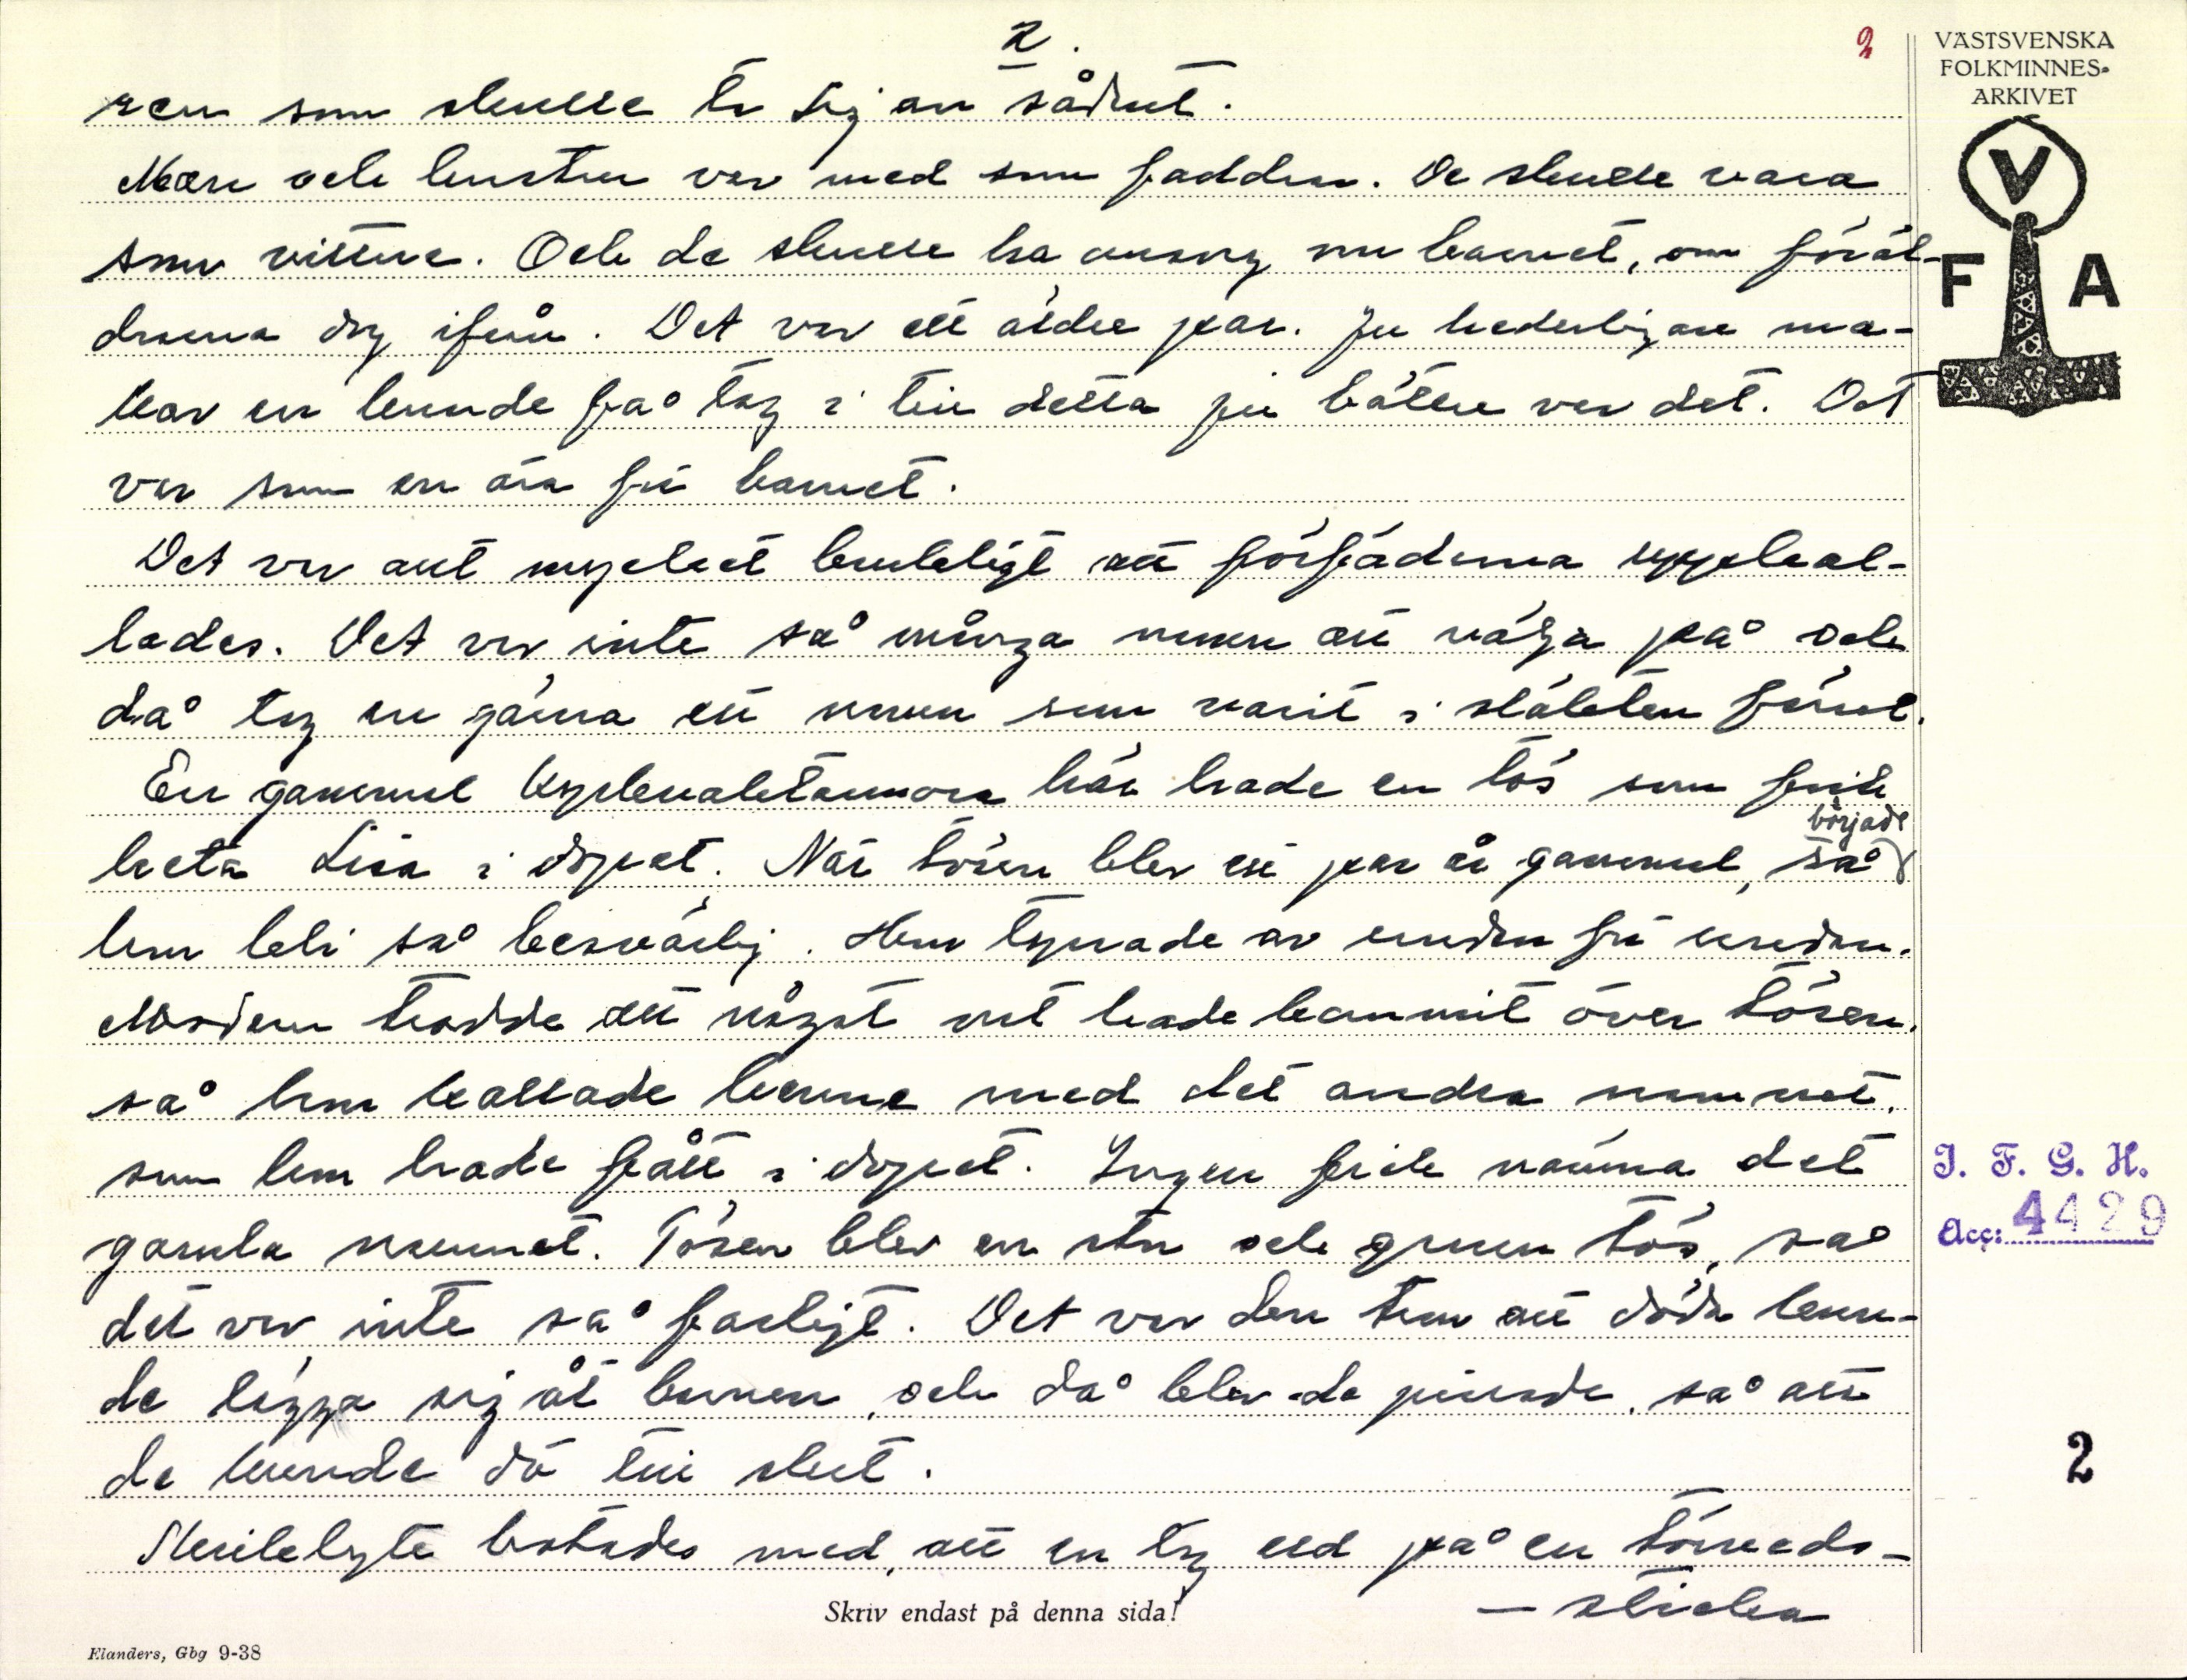 2.
2
VÄSTSVENSKA
FOLKMINNES-
ARKIVET
V
F A
ren som skulle ta sig an sådant.
Män och hustru var med som faddrar. De skulle vara
som vittne. Och de skulle ha ansvar om barnet, om föräl-
drarna dog ifrån. Det var ett äldre par. Ju hederligare ma-
kar en kunde få tag i till detta ju bättre var det. Det
var som en ära för barnet.
Det var allt mycket brukligt att förfäderna uppkal-
lades. Det var inte så många namn att välja på och
då tog en gärna ett namn som varit i släkten förut.
En gammal här hade en tös som fick
heta Lisa i dopet. När tösen blev ett par år gammal, så började
hon bli så besvärlig. Hon tynade av undan för undan.
Modern trodde att något ont hade kommit över tösen,
så hon kallade henne med det andra namnet,
som hon hade fått i dopet. Ingen fick nämna det
gamla namnet. Tösen blev en stor och grann tös, så
det var inte så farligt. Det var den tron att döda kun-
de lägga sig åt barnen, och då blev de pinade, så att
de kunde dö till slut.
botades med, att en tog eld på en törveds-
– sticka
I. F. G. H.
Acc: 4429
2
Skriv endast på denna sida!
Elanders, Gbg 9-38